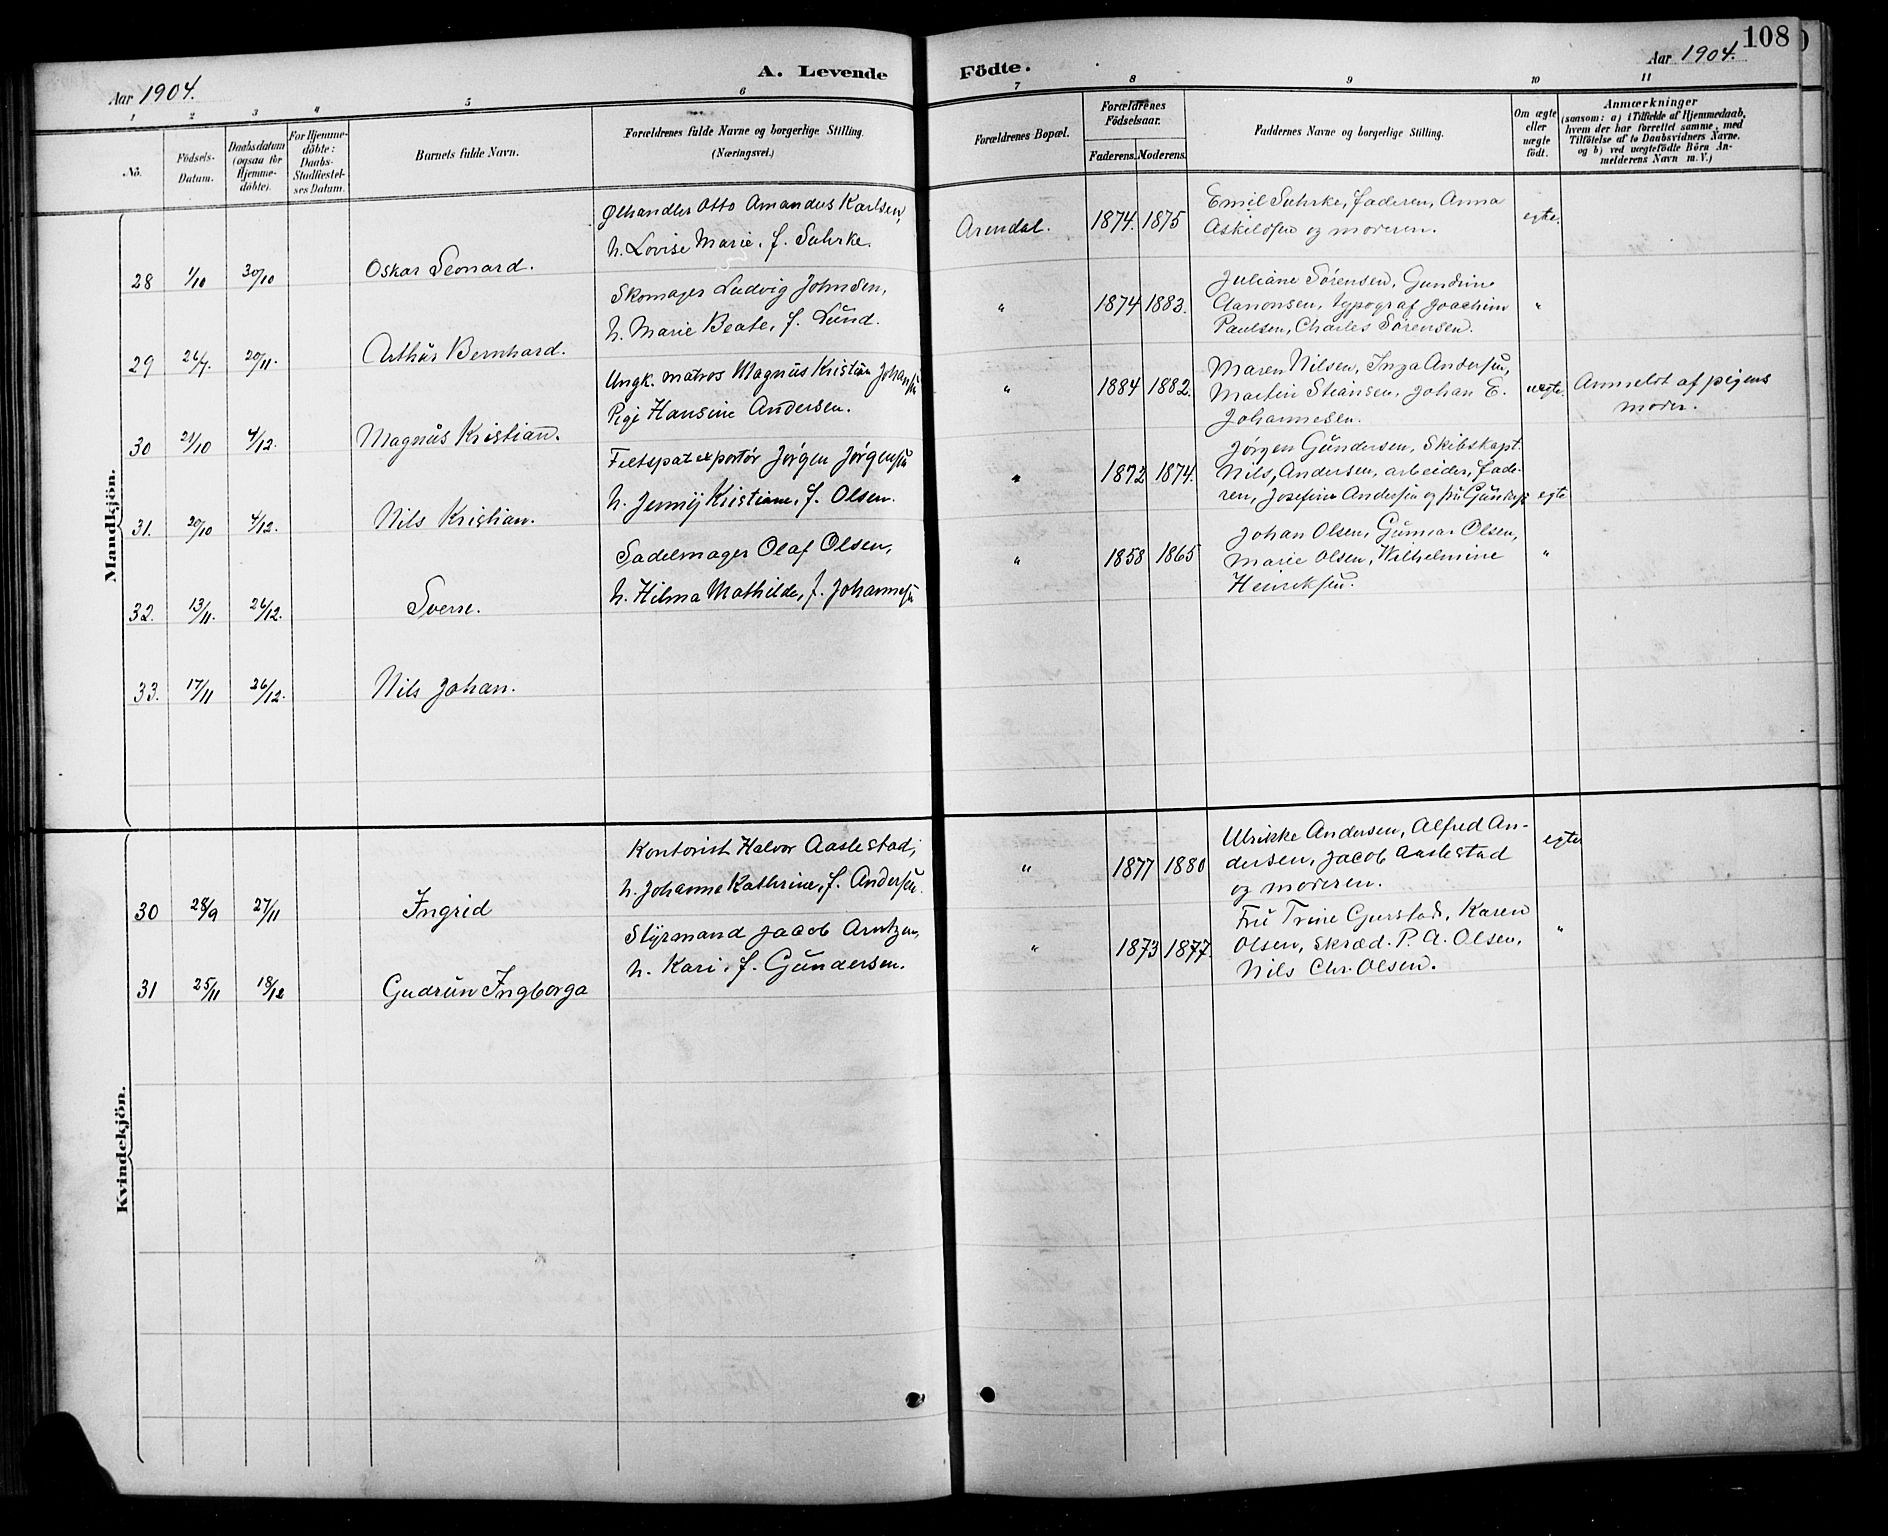 108
Aar 1904.
A. Levende Födte.
Aar 1904.
1 2 3 4 5 6 7 8 9 10 11
No.
Födsels-Datum.
Daabsdatum (ogsaa for Hjemmedöbte).
For Hjemmedöbte: Daabs-Stadfæstelses Datum.
Barnets fulde Navn.
Forældrenes fulde Navne og borgerlige Stilling.
(Næringsvei.)
Forældrenes Bopæl.
Forældrenes Födselsaar.
Faderens. Moderens.
Faddernes Navne og borgerlige Stilling.
Om ægte eller uægte födt.
Anmærkninger
(saasom: a) i Tilfælde af Hjemmedaab,
hvem der har forrettet samme, med
Tilföielse af to Daabsvidners Navne.
og b) ved uægtefödte Börn An-
melderens Navn m. V.)
Mandkjön.
Ølhandler Otto Amandus Karlsen,
h. Lovise Marie, f. Suhrke.
Arendal. 1874. 1875
Emil Suhrke, faderen, Anna
Askildsen og moderen.
egte.
28 1/10 30/10 Oskar Leonard.
Skomager Ludvig Johnsen,
h. Marie Beate, f. Lund.
" 1874 1883.
Juliane Sørensen, Gundine
Aanonsen, typograf Joachim
Paulsen, Charles Sørensen.
"
29 26/7. 20/11. Arthur Bernhard.
Ungk. matros Magnus Kristian Johansen
Pige Hansine Andersen.
" 1884 1882.
Maren Nilsen, Inga Andersen,
Martin Stiansen, Johan E.
Johannesen.
uegte.
Anmeldt af pigens
moder.
30 21/10 4/12. Magnus Kristian.
Feltspatexportør Jørgen Jørgensen
h. Jenny Kristiane, f. Olsen.
" 1872 1874.
Jørgen Gundersen, Skibskapt.
Nils Andersen, arbeider, fade-
ren, Josefine Andersen og fru Gundersen
egte
31. 20/10 4/12. Nils Kristian.
Sadelmager Olaf Olsen,
h. Hilma Mathilde, f. Johannesen
" 1858 1865
Johan Olsen, Gunnar Olsen,
Marie Olsen, Wilhelmine
Henriksen.
"
32. 13/11. 26/12. Sverre.
33. 17/11 26/12. Nils Johan.
Kvindekjön.
Kontorist Halvor Aaslestad,
h. Johanne Kathrine, f. Andersen.
" 1877 1880
Ulrikke Andersen, Alfred An-
dersen, Jacob Aaslestad
og moderen.
egte
30 28/9 27/11 Ingrid
Styrmand Jacob Arntzen,
h. Kari, f. Gundersen.
" 1873 1877.
Fru Trine Gjerstad, Karen
Olsen, skræd. P. A. Olsen,
Nils Chr. Olsen.
"
31 25/11 18/12 Gudrun Ingborga